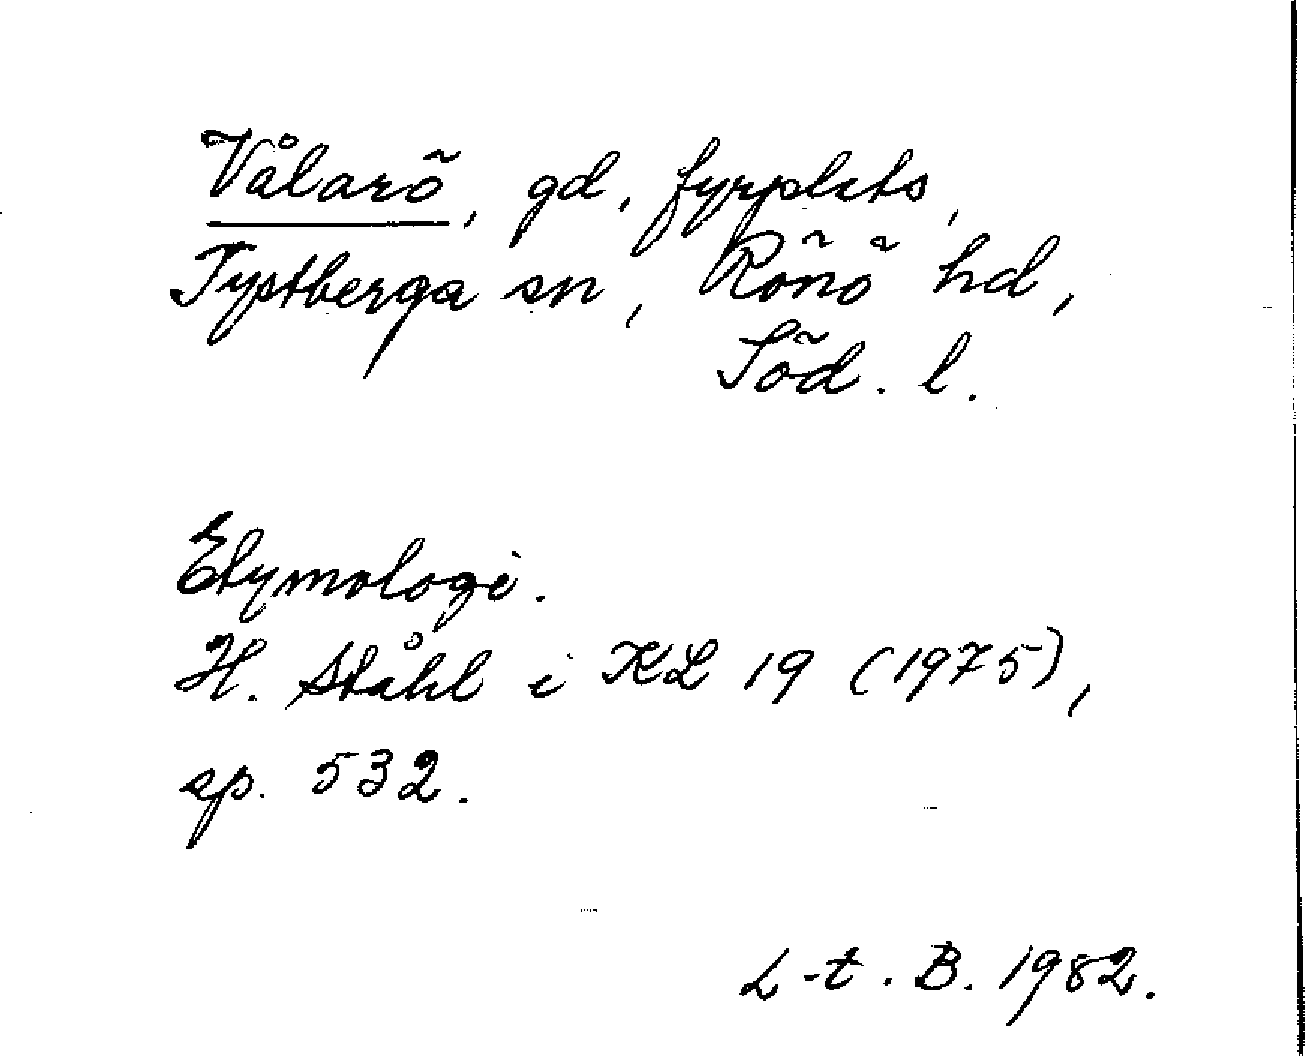 Vålarö, gd, fyrplats,
Tystberga sn, Rönö hd,
Söd. l.
Etymologi.
H. Ståhl i KL 19 (1975),
sp. 532.
L-t. B. 1982.